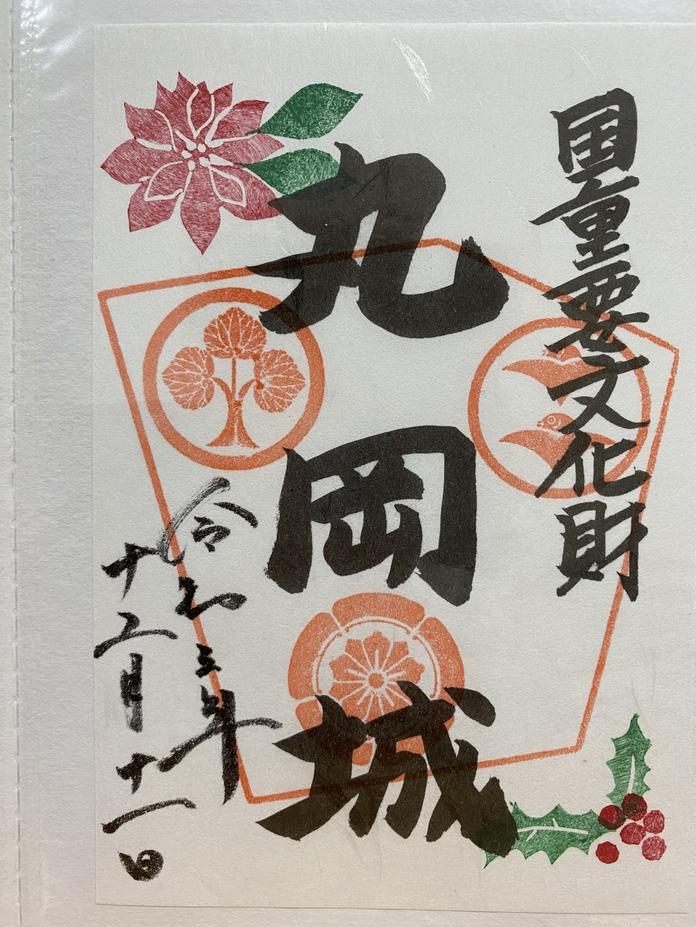 国重要文化財
丸岡城
令和三年
十二月十一日